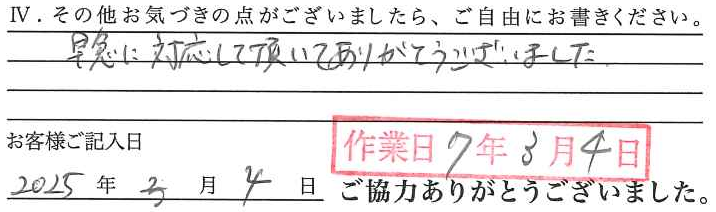 Ⅳ．その他お気づきの点がございましたら、ご自由にお書きください。
早急に対応して頂いてありがとうございました
お客様ご記入日
作業日7年3月4日
2025年3月4日
ご協力ありがとうございました。